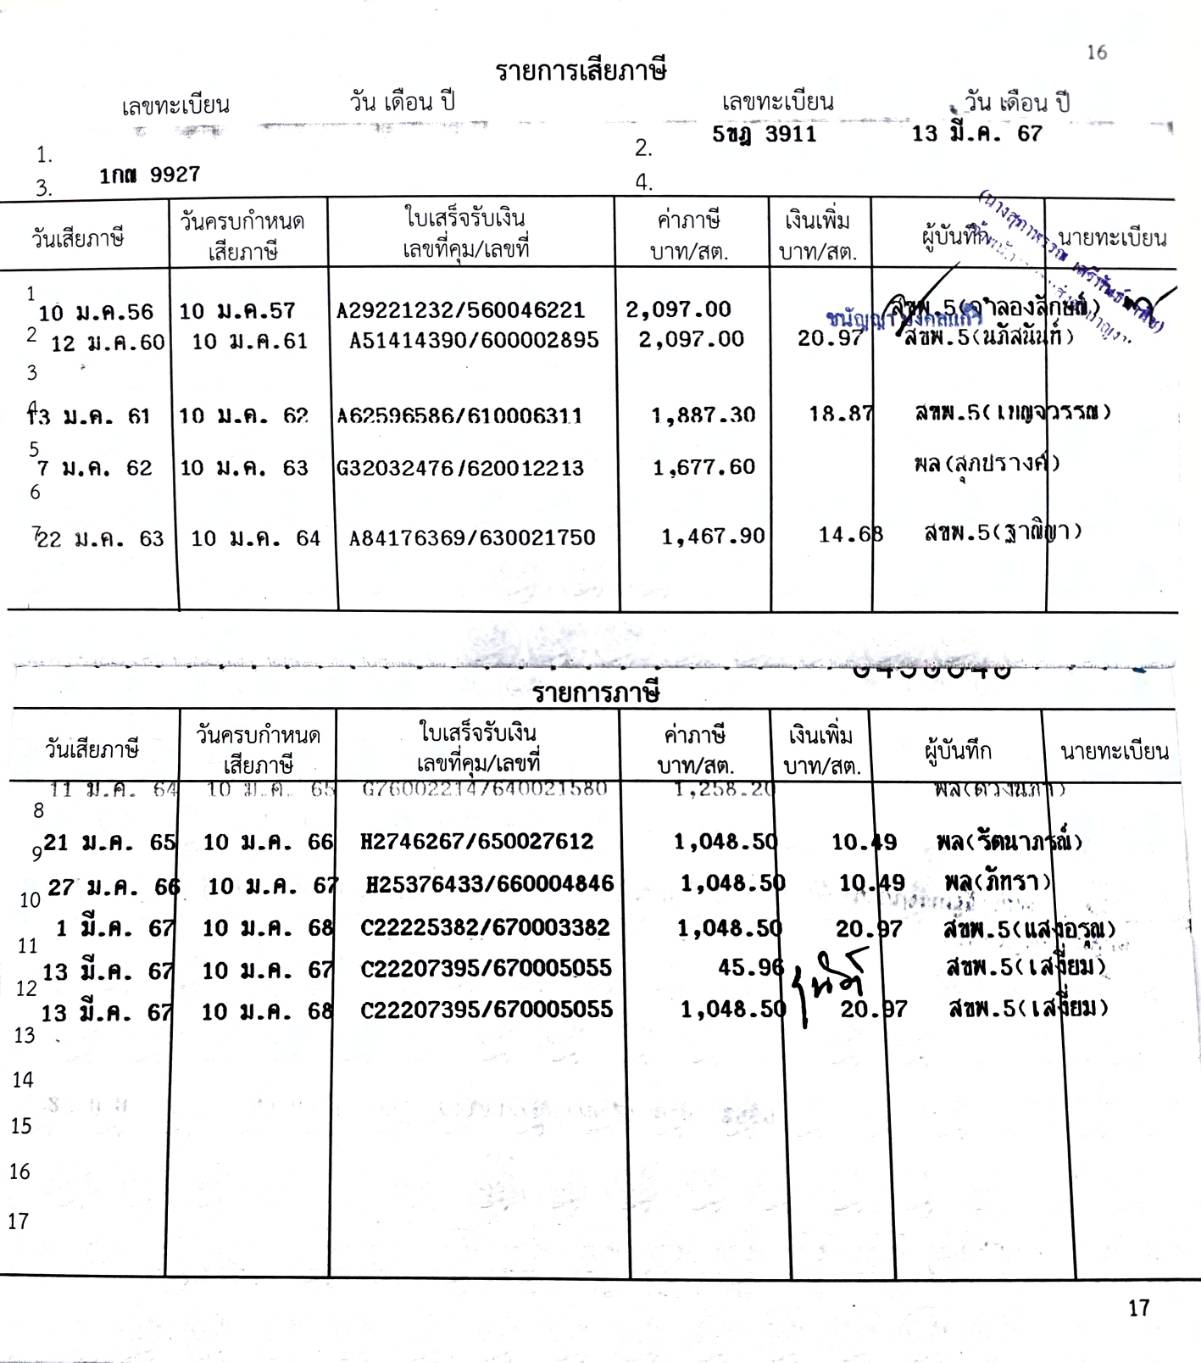 16
รายการเสียภาษี
เลขทะเบียน วัน เดือน ปี เลขทะเบียน วัน เดือน ปี
1. 2. 5ขฎ 3911 13 มี.ค. 67
3. 1กณ 9927 4.
วันเสียภาษี วันครบกำหนดเสียภาษี ใบเสร็จรับเงิน เลขที่คุม/เลขที่ ค่าภาษี บาท/สต. เงินเพิ่ม บาท/สต. ผู้บันทึก นายทะเบียน
1 10 ม.ค.56 10 ม.ค.57 A29221232/560046221 2,097.00 สขพ.5(จำลองลักษณ์)
2 12 ม.ค.60 10 ม.ค.61 A51414390/600002895 2,097.00 20.97 สขพ.5(นภัสนันท์)
3
4 13 ม.ค. 61 10 ม.ค. 62 A62596586/610006311 1,887.30 18.87 สขพ.5(เบญจวรรณ)
5
7 ม.ค. 62 10 ม.ค. 63 G32032476/620012213 1,677.60 พล(สุภปรางค์)
6
7 22 ม.ค. 63 10 ม.ค. 64 A84176369/630021750 1,467.90 14.68 สขพ.5(ฐาณิญา)
รายการภาษี
วันเสียภาษี วันครบกำหนดเสียภาษี ใบเสร็จรับเงิน เลขที่คุม/เลขที่ ค่าภาษี บาท/สต. เงินเพิ่ม บาท/สต. ผู้บันทึก นายทะเบียน
11 ม.ค. 64 10 ม.ค. 65 G76002214/640021580 1,258.20
8
9 21 ม.ค. 65 10 ม.ค. 66 H2746267/650027612 1,048.50 10.49 พล(รัตนาภรณ์)
10 27 ม.ค. 66 10 ม.ค. 67 H25376433/660004846 1,048.50 10.49 พล(ภัทรา)
11 1 มี.ค. 67 10 ม.ค. 68 C22225382/670003382 1,048.50 20.97 สขพ.5(แสงอรุณ)
12 13 มี.ค. 67 10 ม.ค. 67 C22207395/670005055 45.96 สขพ.5(เสงี่ยม)
13 มี.ค. 67 10 ม.ค. 68 C22207395/670005055 1,048.50 20.97 สขพ.5(เสงี่ยม)
13
14
15
16
17
17